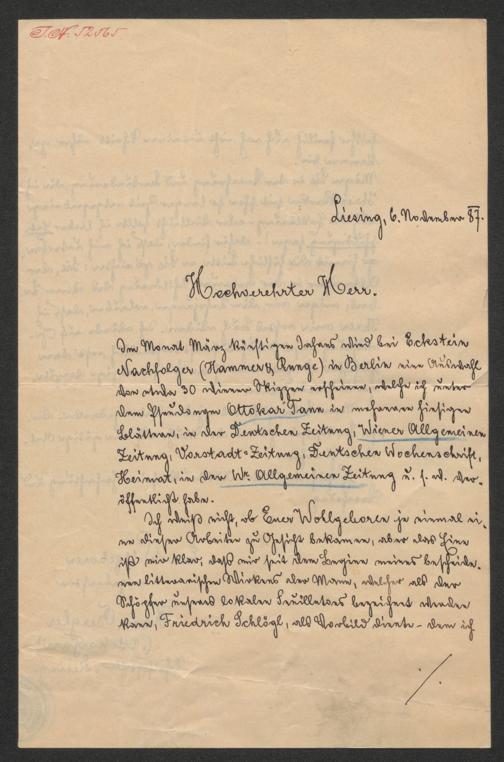 I.N. 52565
Liesing, 6. November 87.
Hochverehrter Herr.
Im Monat März künftigen Jahres wird bei Eckstein
Nachfolger (Hammer & Runge) in Berlin eine Auswahl
von etwa 30 wiener Skizzen erscheinen, welche ich unter
dem Pseudonym Ottokar Tann in mehreren hiesigen
Blättern, in der Deutschen Zeitung, Wiener Allgemeinen
Zeitung, Vorstadt-Zeitung, Deutschen Wochenschrift,
Heimat, in der Wr. Allgemeinen Zeitung u. s. w. ver-
öffentlicht habe.
Ich weiß nicht, ob Euer Wohlgeboren je einmal ei-
ne dieser Arbeiten zu Gesicht bekamen, aber das Eine
ist mir klar, daß mir seit dem Beginn meines bescheide-
nen litterarischen Wirkens der Mann, welcher als der
Schöpfer unseres lokalen Feuilletons bezeichnet werden
kann, Friedrich Schlögl, als Vorbild diente – dem ich
./.